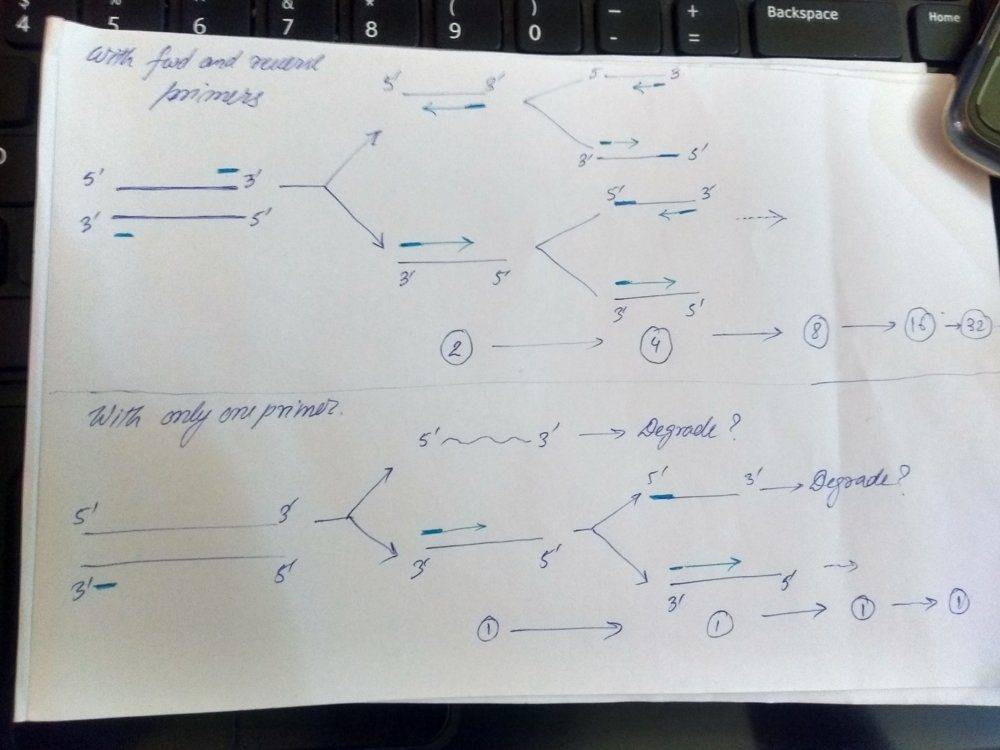 $ 4
% 5
^ 6
& 7
* 8
( 9
) 0
- -
+ =
Backspace
Home
With fwd and reverse
primers
5' 3'
5 3
3' 5'
5' 3'
3' 5'
5' 3'
3' 5'
3' 5'
2 → 4 → 8 → 16 → 32
With only one primer.
5' 3' → Degrade?
5' 3' → Degrade?
5' 3'
3' 5'
3' 5'
3' 5'
1 → 1 → 1 → 1